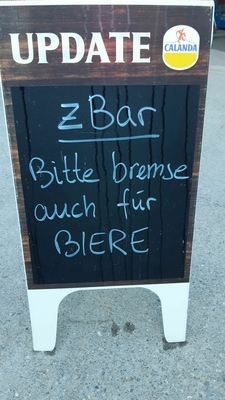 UPDATE
CALANDA
zBar
Bitte bremse
auch für
BIERE